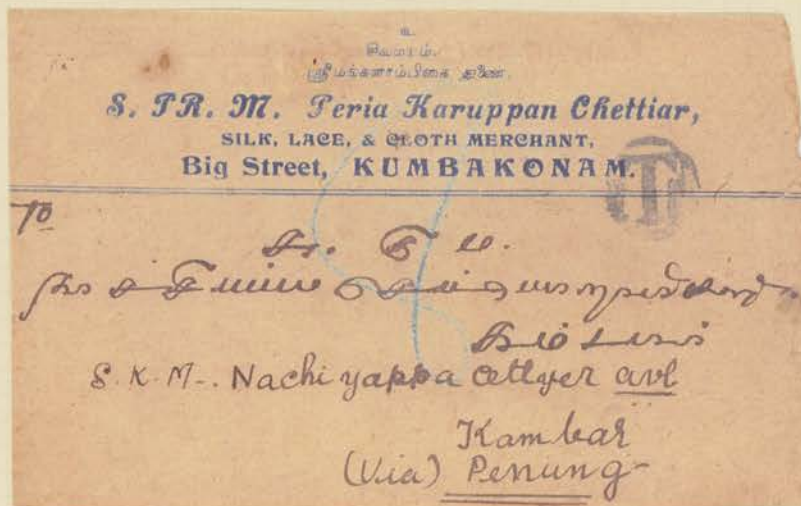 உ
சிவமயம்.
ஸ்ரீமங்களாம்பிகை துணை.
S. PR. M. Peria Karuppan Chettiar,
SILK, LACE, & CLOTH MERCHANT,
Big Street, KUMBAKONAM.
T
To
S. K. M-. Nachiyappa Cettyer avl
Kambar
(Via) Penung